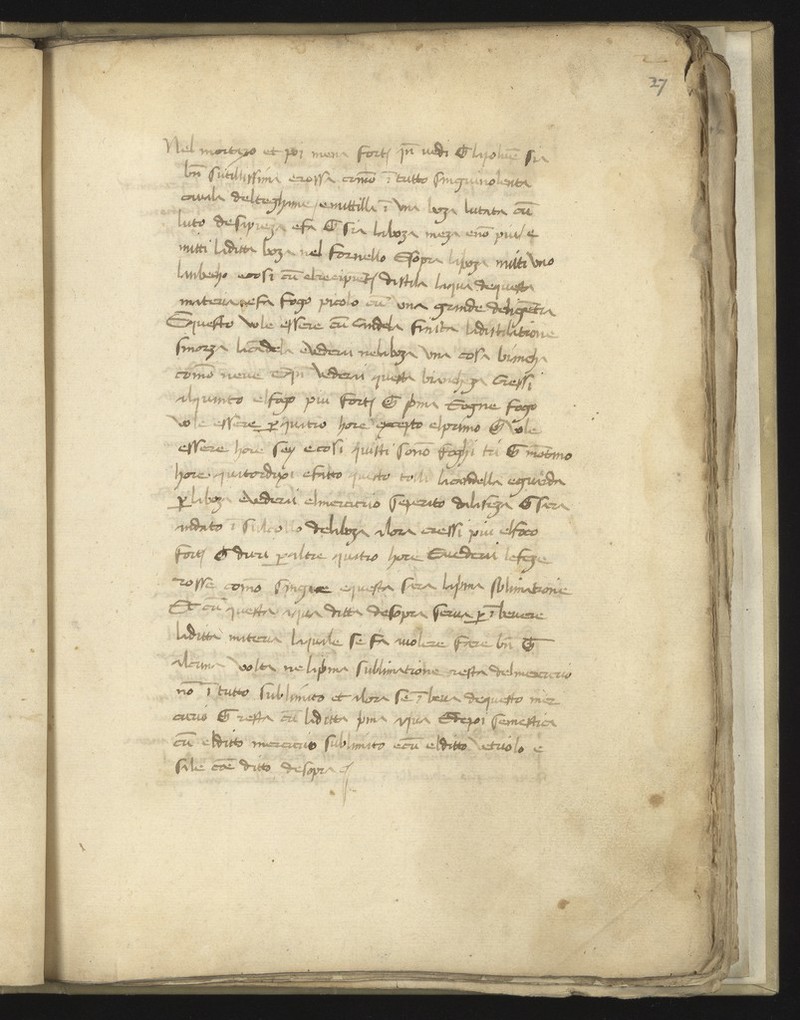 27
Nel mortaro et poi mena forte qñ vedi ch̄ la polve sia
bñ sutilissima e rossa como ī tutto sanguinolenta
cavala del teghime e mittilla ī una boza lutata cū
luto de sapieza e fa ch̄ sia la boza meza e nō piu e
mitti la ditta boza nel fornello e sopra la boza mitti uno
lambecho e cosi cū el recipiente distila laqua de questa
materia e fa fogo picolo cū una grande deligētia
E questo vole essere cū candela finita la distilatione
smorza la cādela e vederai ne la boza una cosa biancha
como neve e qñ vederai questa biancheza cressi
alquanto el fogo piu forte ch̄ pma e ogne fogo
vole essere p̱ quatro hore excepto el primo ch̄ vole
essere hore sey e cosi quisti sono foghi tri ch̄ montano
hore quatordixi e fatto questo tolli la candella e guarda
p̱ la boza e vederai el mercurio seperito da la feza ch̄ sera
andato ī su al collo de la boza alora cressi piu el foco
forte ch̄ duri p̱ altre quatro hore e vederai le feze
rosse como sangue e questa sera la pma sblimatione
Et cū questa aqua ditta de sopra serva p̱ ī bevere
la ditta materia la quale se fa a volere fare bñ ch̄
alcuna volta ne la pma sublimatione resta del mercurio
nō ī tutto sublimato et alora se ī beva de questo mer
curio ch̄ resta cū la ditta pma aqua e depoi se mestica
cū el ditto mercurio sublimato e cū el ditto vetriolo e
sale cōe ditto de sopra